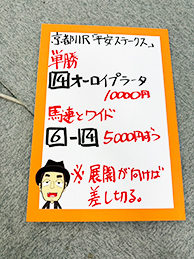 京都11R「平安ステークス」
単勝
14オーロイプラータ
10000円
馬連とワイド
6-14 5000円ずつ
※展開が向けば
差し切る。